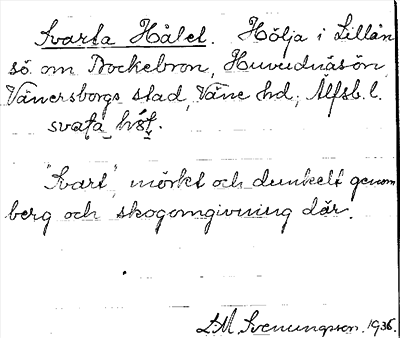 Svarta Hålet. Hölja i Lillån
sö om Dockebron, Huvudnäsön,
Vänersborgs stad, Väne hd, Älfsb. l.
svaṭa hó̤ḷ.
"Svart", mörkt och dunkelt genom
berg och skogomgivning där.
D.M. Svenungsson. 1936.